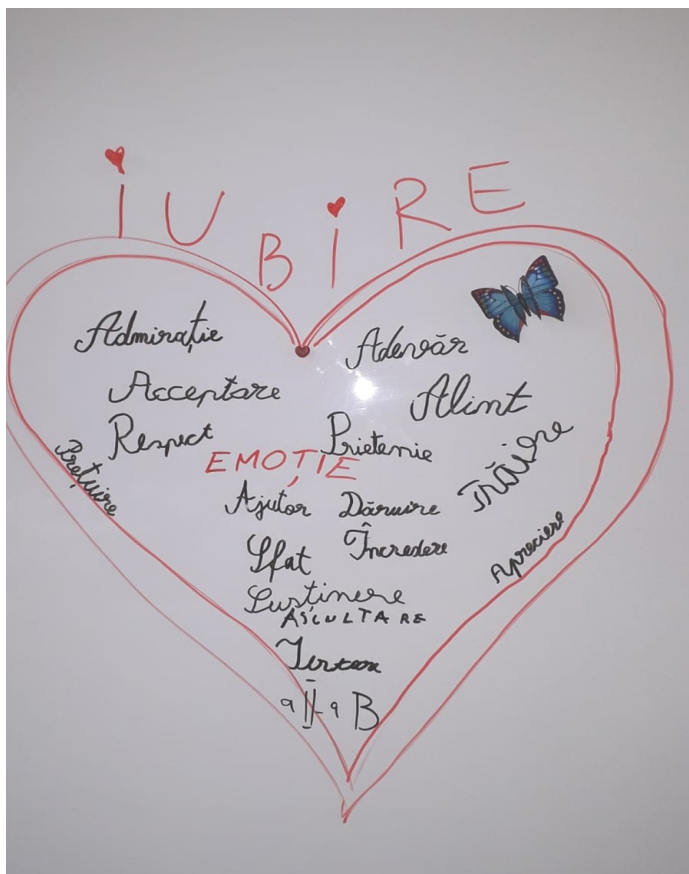 IUBIRE
Admirație
Adevăr
Acceptare
Alint
Respect
Prietenie
Trăire
Prețuire
EMOȚIE
Ajutor Dăruire
Sfat Încredere
Apreciere
Susținere
ASCULTARE
Iertare
a II-a B